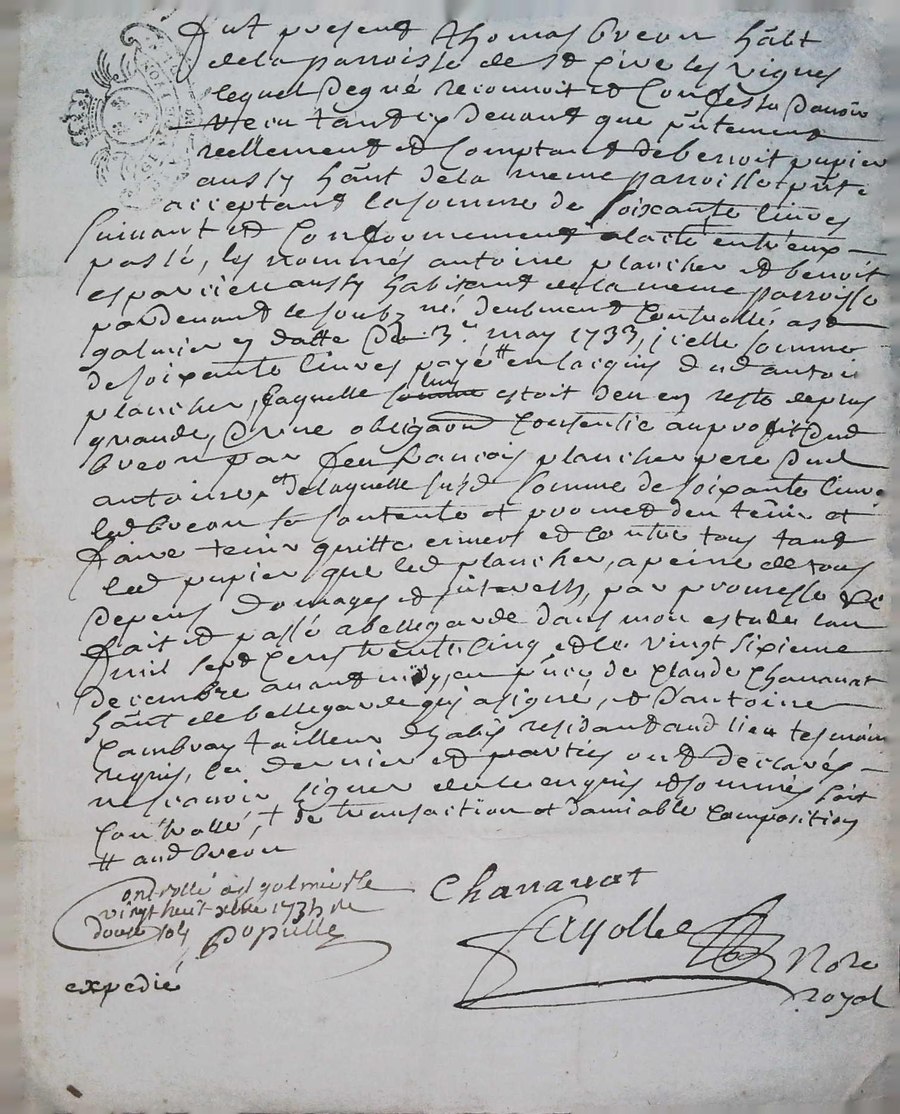 fut present thomas breon hãbt
de la parroisse de st Cire les vignes
lequel de gré reconnoit et Confesse d'avoir
receu tant cy devant que pñtement
reellement et Comptant de benoit pupier
aussy hãnt de la meme parroisse et pñt
acceptant la somme de soixante livres
suivant et Conformement a lacte entr'eux
passé, les nommés antoine plancher et benoit
esparcieu aussy habitant de la meme parroisse
pardevant le soubz né deubment Controllé a st
galmier en datte du 3e may 1733, icelle somme
de soixante livres payé # en lacquis dud antoi
plancher, laquelle somme estoit deu en reste de plus
grande, d'une obligaõn Contenüe au profit dud
breon par feu francois plancher pere dud
antoine, et de laquelle susd somme de soixante livres
led breon se contente et promet d'en tenir et
faire tenir quitte envers et contre tous tant
led pupier que led plancher, a peine de tous
depens domages et interests, par promesse
fait et passé a bellegarde dans mon estude lan
mil sept cens trente cinq et le vingt sixieme
decembre avant midy, en pñce de Claude Chananat
hãnt de bellegarde qui a signé, et d'antoine
Cambray tailleur d'habis residant aud lieu tesmoin
requis, le dernier et parties ont declarés
ne scavoir signer de ce enquis et sommés soit
Con'trollé, + de transaction et d'amiable Composition
# aud breon
Chananat
Controllé a st galmier le
vingt huit xbre 1735 re
douze sols
Populle
fayolle
Nore
royal
expedié